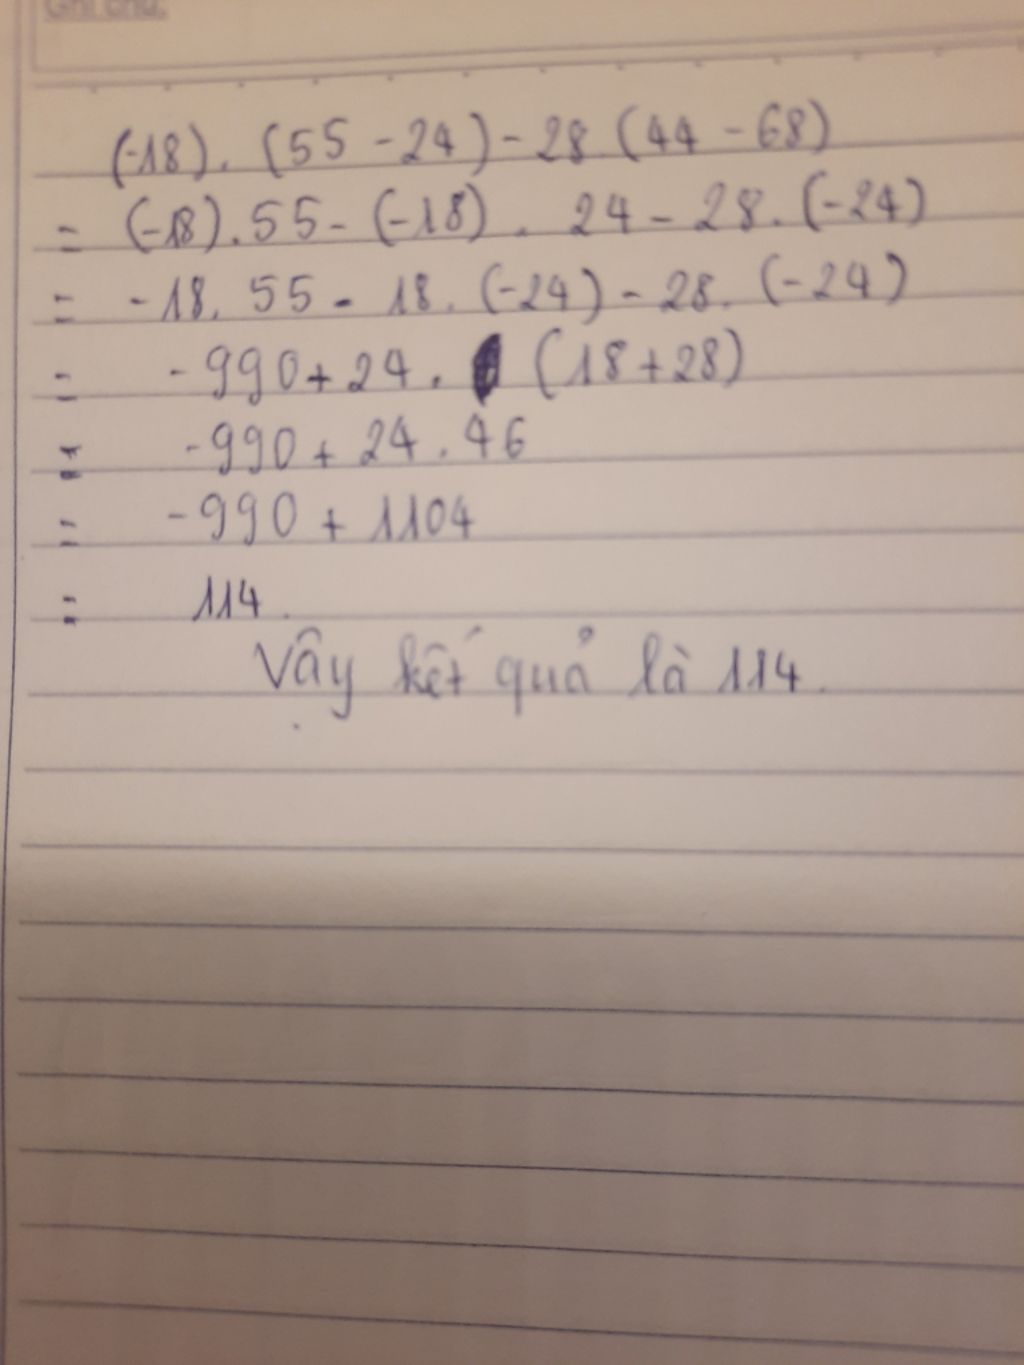 Ghi chú:
(-18). (55 - 24) - 28 (44 - 68)
= (-18).55 - (-18) . 24 - 28. (-24)
= -18. 55 - 18. (-24) - 28. (-24)
= -990 + 24 . (18 + 28)
= -990 + 24 . 46
= -990 + 1104
= 114.
Vậy kết quả là 114.